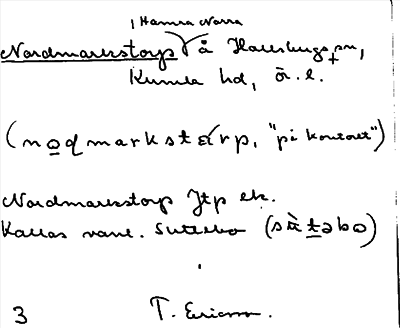 , Hamra Norra
Nordmarkstorp å Hallsbergs sn,
Kumla hd, Ö. l.
(nǫqmarkstárp, "på kontoret")
Nordmarkstorp Jtp ek.
Kallas vanl. Suttebo (sὰtəbo)
3 T. Ericson.